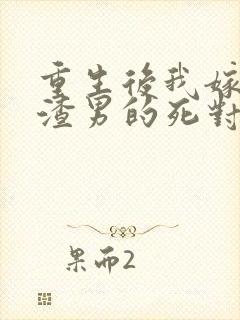 重生後我嫁
渣男的死對
果而2